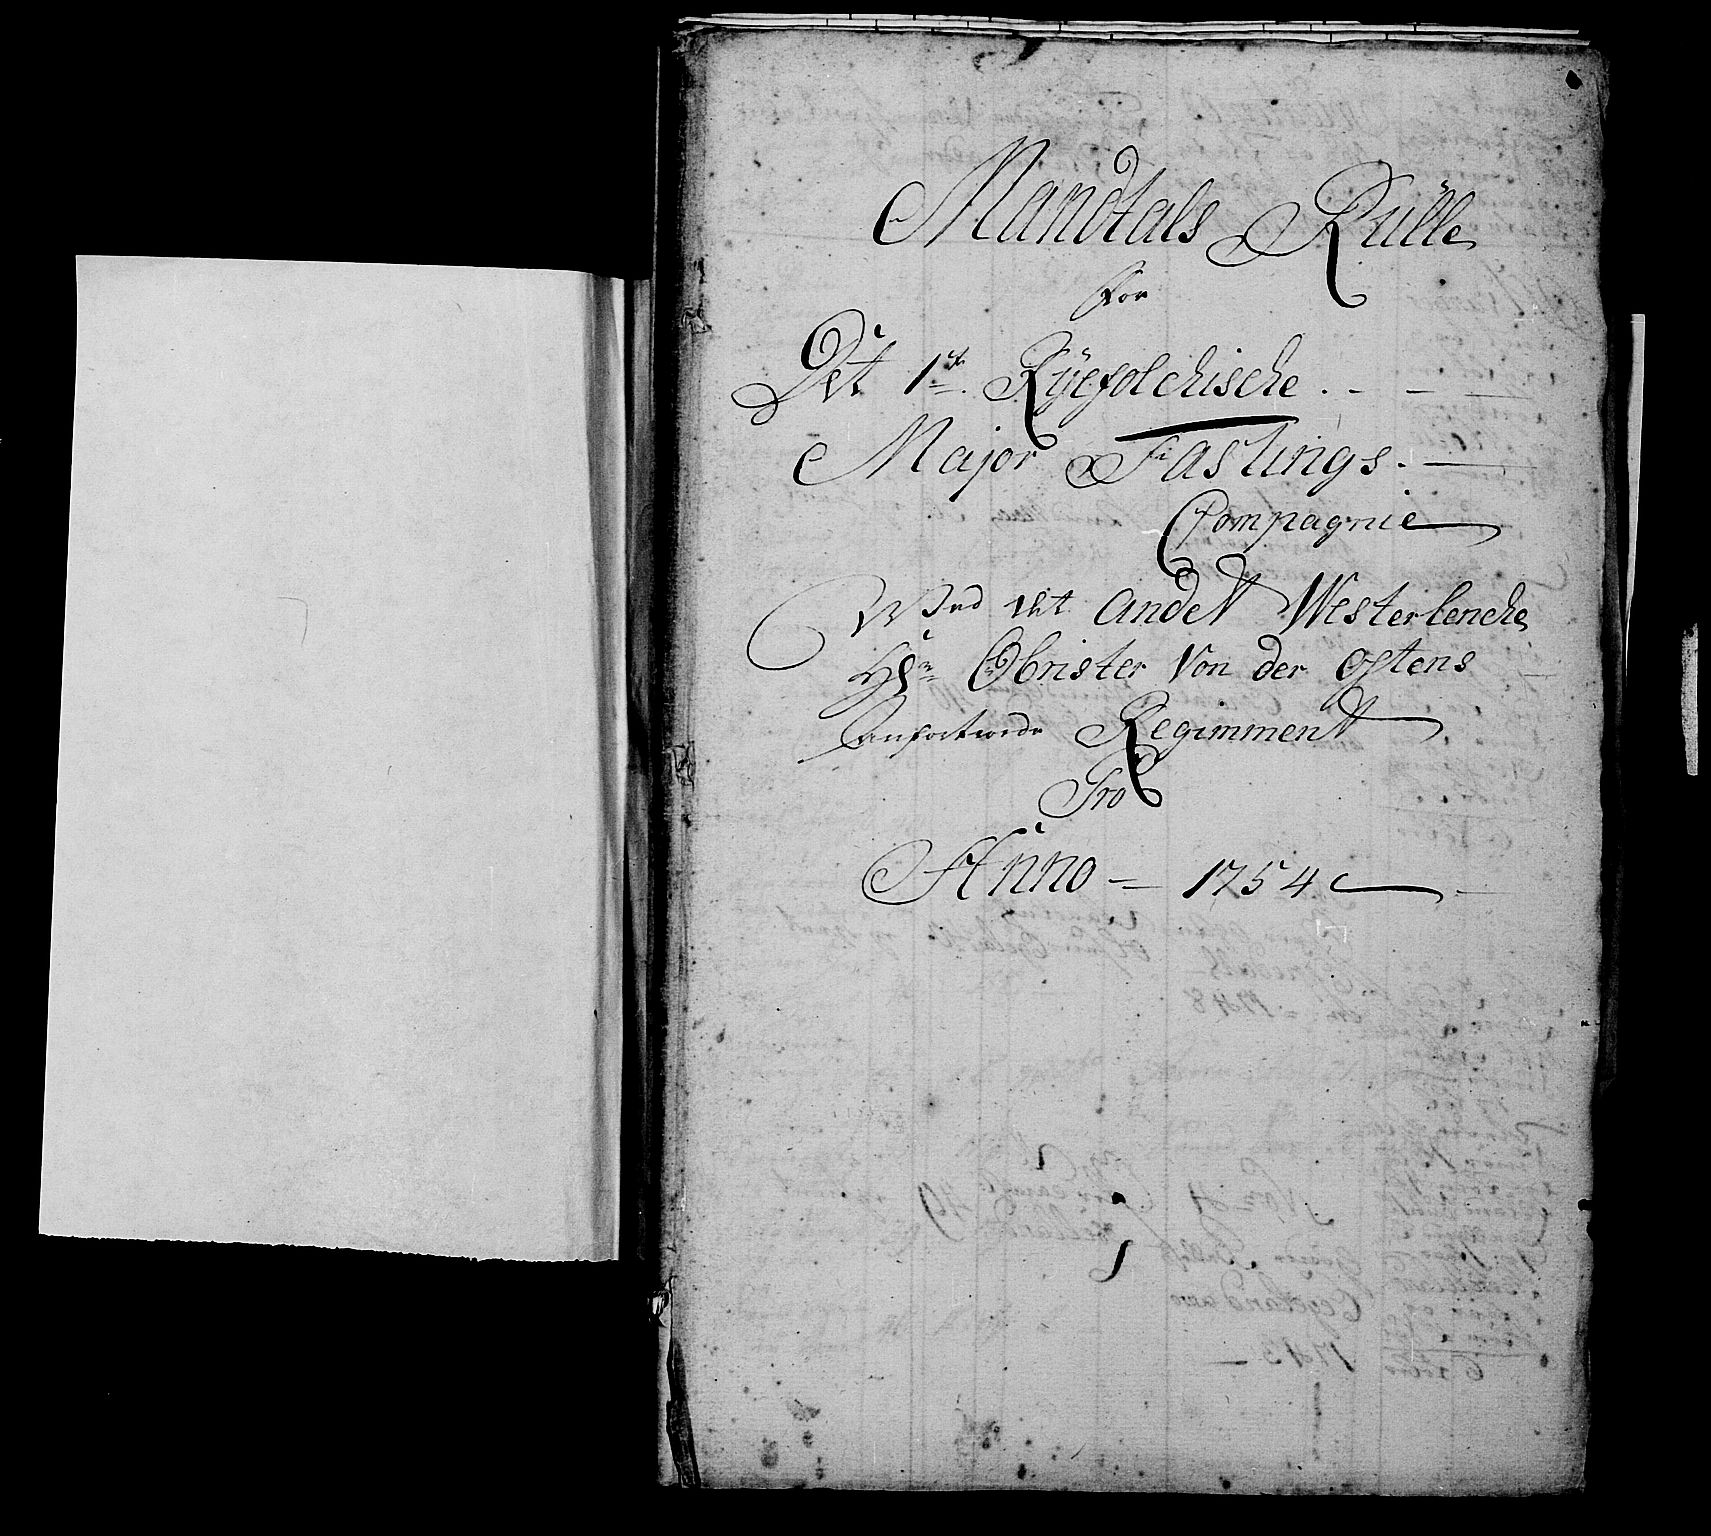 Mandtals Rulle
for
Det 1ste Ryefolckische
Major Fastings
Compagnie
Wed det andet Westerlencke
Hr Obrister Von der Ostens
anfortroede Regimment
Pro
Anno 1754